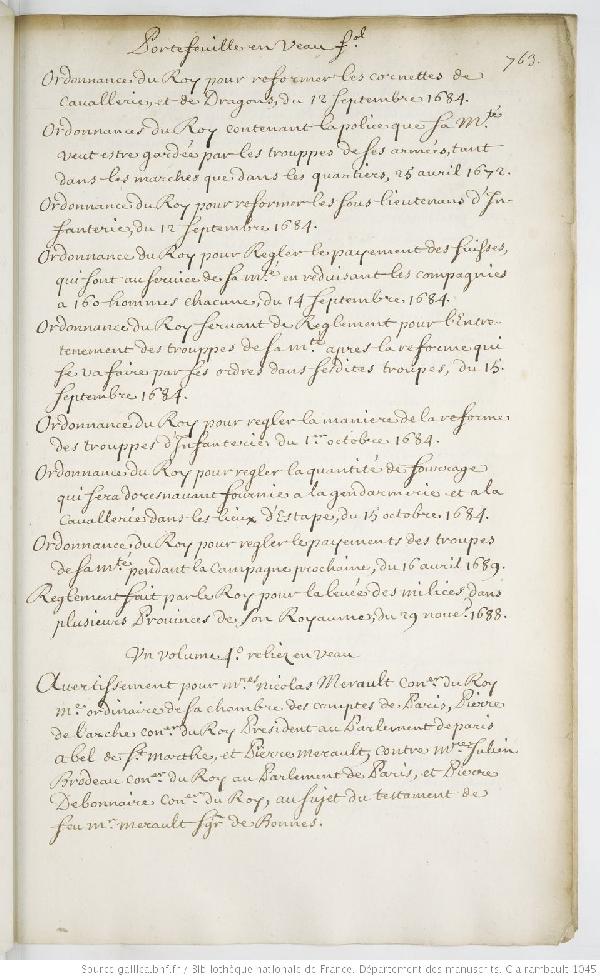 Portefeuille en veau f.ol
763.
Ordonnance du Roy pour reformer les cornettes de
Cavallerie, et de Dragons, du 12 Septembre 1684.
Ordonnances du Roy contenant la police que sa M.té
veut estre gardée par les trouppes de ses armées, tant
dans les marches que dans les quartiers, 25 avril 1672.
Ordonnance du Roy pour reformer les sous-lieutenans d'In-
fanterie, du 12 Septembre 1684.
Ordonnance du Roy pour Regler le payement des suisses,
qui sont au service de sa m.té en reduisant les compagnies
a 160 hommes chacune, du 14 Septembre 1684.
Ordonnance du Roy servant de Reglement pour l'Entre-
tenement des trouppes de sa m.té apres la reforme qui
se va faire par ses ordres dans sesdites troupes, du 15.
Septembre 1684.
Ordonnance du Roy pour regler la maniere de la reforme
des trouppes d'Infanterie du 1.er octobre 1684.
Ordonnance du Roy pour regler la quantité de fourrage
qui sera doresnavant fournie a la gendarmerie et a la
Cavallerie dans les lieux d'Estape, du 15 octobre 1684.
Ordonnance du Roy pour regler le payements des troupes
de sa m.té pendant la Campagne prochaine, du 16 avril 1689.
Reglement fait par le Roy pour la levée des milices, dans
plusieurs Provinces de son Royaume, du 29 nove.e 1688.
Un volume 4.o relié en veau
Avertissement pour m.res nicolas Merault con.er du Roy
m.e ordinaire de sa chambre des comptes de Paris, Pierre
de Larche con.er du Roy President au Parlement de paris
abel de S.te marthe, et Pierre merault, contre m.res Julien
Brodeau con.er du Roy au Parlement de Paris, et Pierre
Debonnaire con.er du Roy, au sujet du testament de
feu m.r merault sgr de Bonnes.
Source gallica.bnf.fr / Bibliothèque nationale de France. Département des manuscrits. Clairambault 1045